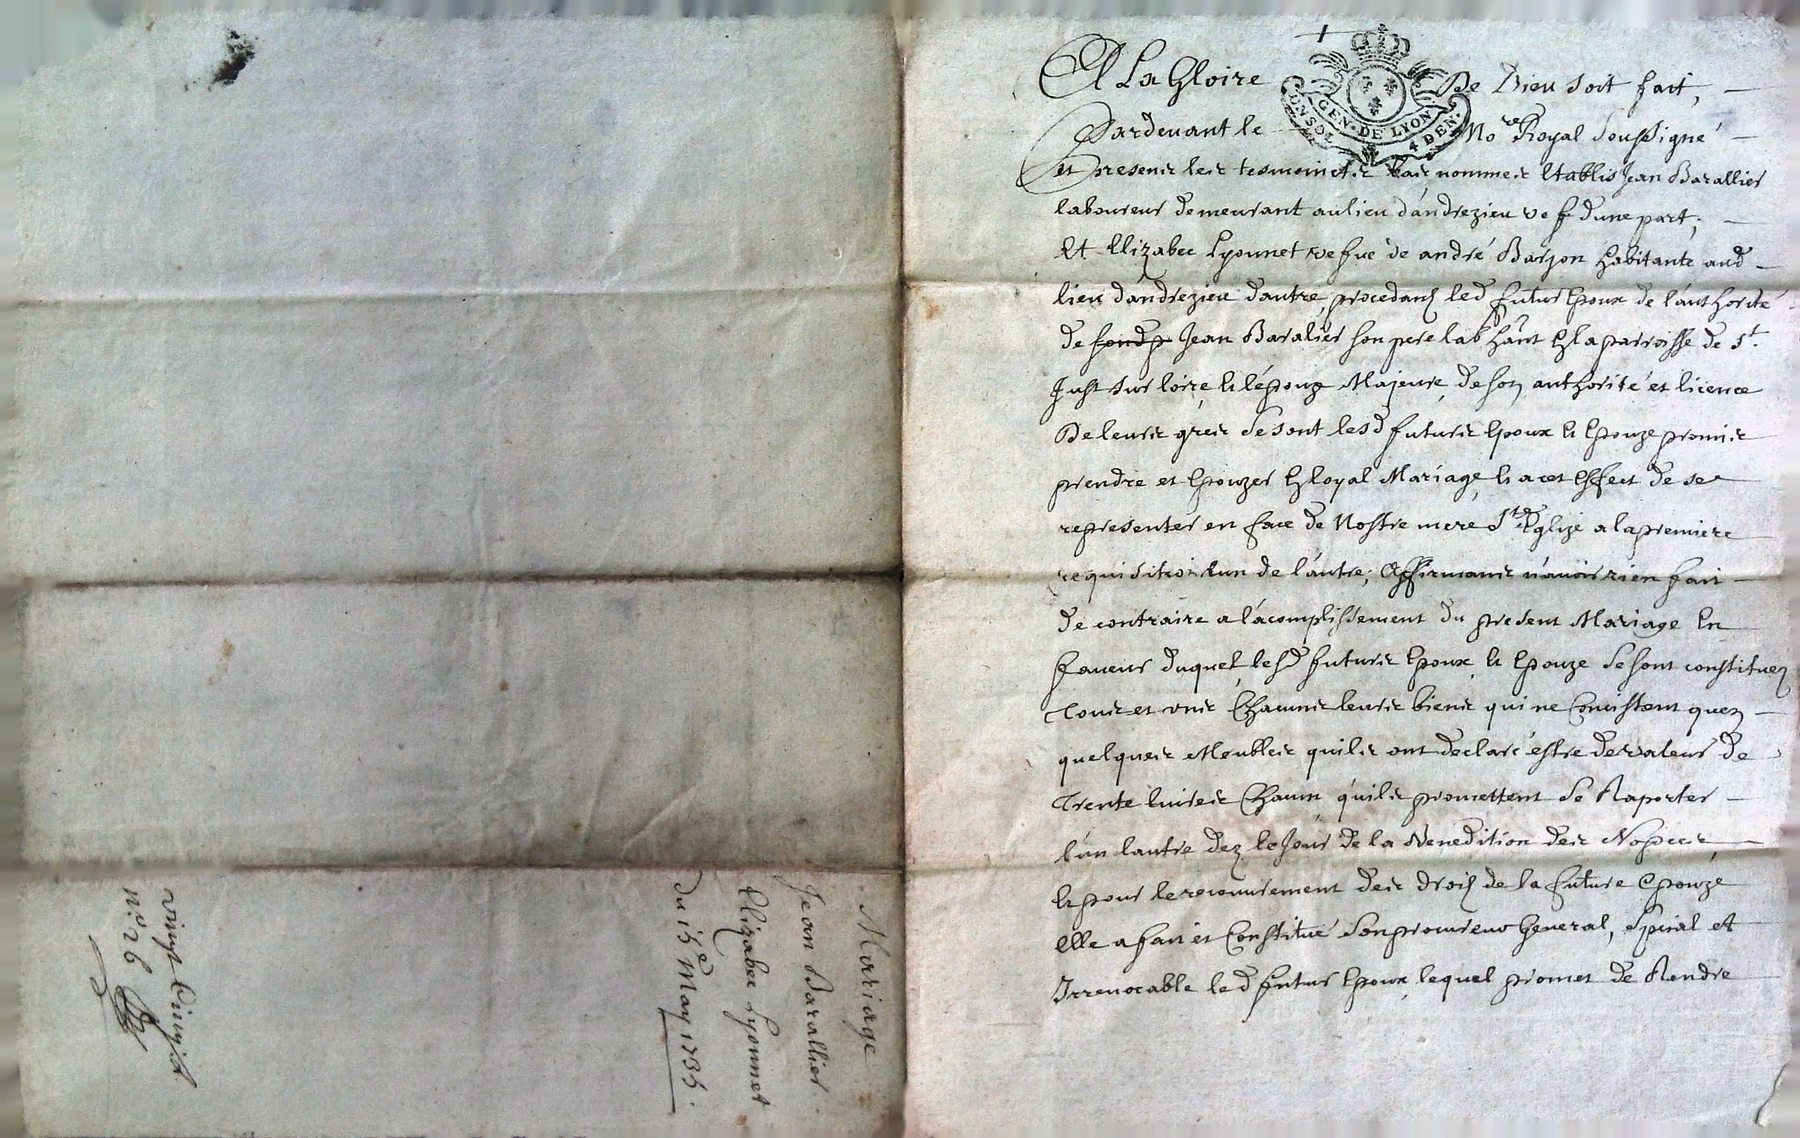 A La Gloire De Dieu soit fait,
GEN. DE LYON
4 DEN.
Pardevant le No.re Royal soussigné
et presens les tesmoins bas nommes Etablis Jean Barallier
laboureur demeurant au lieu d'andrezieu vef d'une part,
Et Elizabec Lyonnet vefue de andré Barjon habitante aud
lieu d'andrezieu d'autre, procedans led futur Epoux de l'authorité
de Jean Baralier son pere lab habant En la parroisse de St.
Just sur loire, et l'épouze Majeure, de son authorité et licence
De leurs grés se sont lesd futurs Epoux et Epouze promis
prendre et Epouzer En loyal Mariage, et a cet Effect de se
representer en face de Nostre mere Ste Eglize a la premiere
requisition l'un de l'autre, Affirmants n'auoir rien fait
de contraire a l'acomplissement du present Mariage En
faueur duquel, lesd futurs Epoux, et Epouze se sont constituez
Tous et uns Chacuns leurs biens qui ne Consistent quen
quelques Meubles quils ont declaré estre de valeur de
Trente liures Chacun, quils promettent se Raporter
l'un lautre dez le Jour de la Benedition des Nopces,
et pour le recouurement des droits de la future Epouze
elle a fait et Constitué son procureur General, Special et
Irreuocable led futur Epoux, lequel promet de Rendre
Mariage
Jean Barallier
Elizabec Lyonnet
du 15e May 1735.
vingt Cinq s
n.o 26